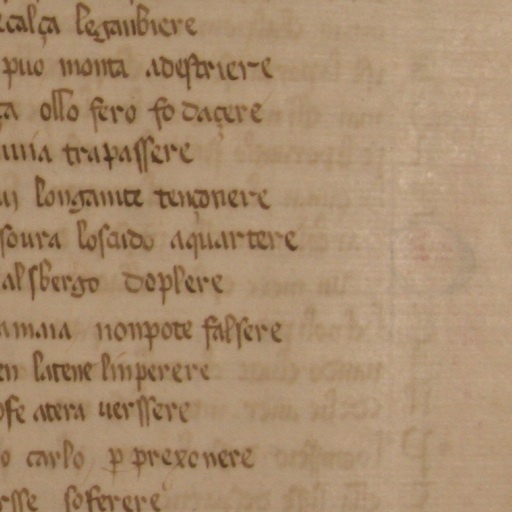 calça legambiere
puo monta adestriere
ollo fero fo daçere
trapassere
longamte tençonere
soura loscudo aquartere
alsbergo doplere
amaia nonpote falsere
en latene linperere
atera uerssere
carlo p prexonere
soferere